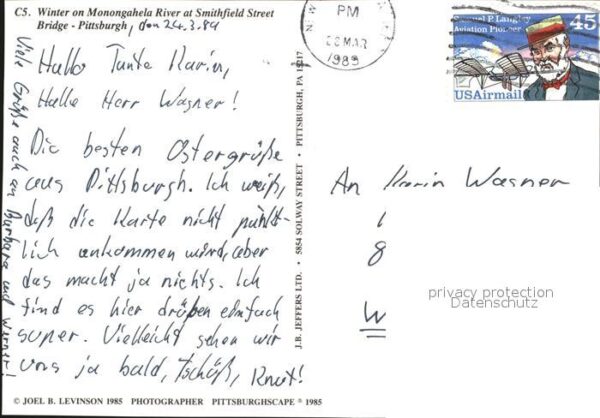 C5. Winter on Monongahela River at Smithfield Street
Bridge - Pittsburgh, den 24.3.89
Hallo Tante Karin,
Hallo Herr Wagner!
Die besten Ostergrüße
aus Pittsburgh. Ich weiß,
daß die Karte nicht pünkt-
lich ankommen wird, aber
das macht ja nichts. Ich
find es hier drüben einfach
super. Vielleicht sehen wir
uns ja bald, tschüß, Knut!
Viele Grüße auch an Barbara und Werner!
© JOEL B. LEVINSON 1985 PHOTOGRAPHER PITTSBURGHSCAPE ® 1985
J.B. JEFFERS LTD. • 5854 SOLWAY STREET • PITTSBURGH, PA 15217
PM
28 MAR
1989
Samuel P. Langley
Aviation Pioneer
45
USAirmail
An Karin Wagner
1
8
W
privacy protection
Datenschutz